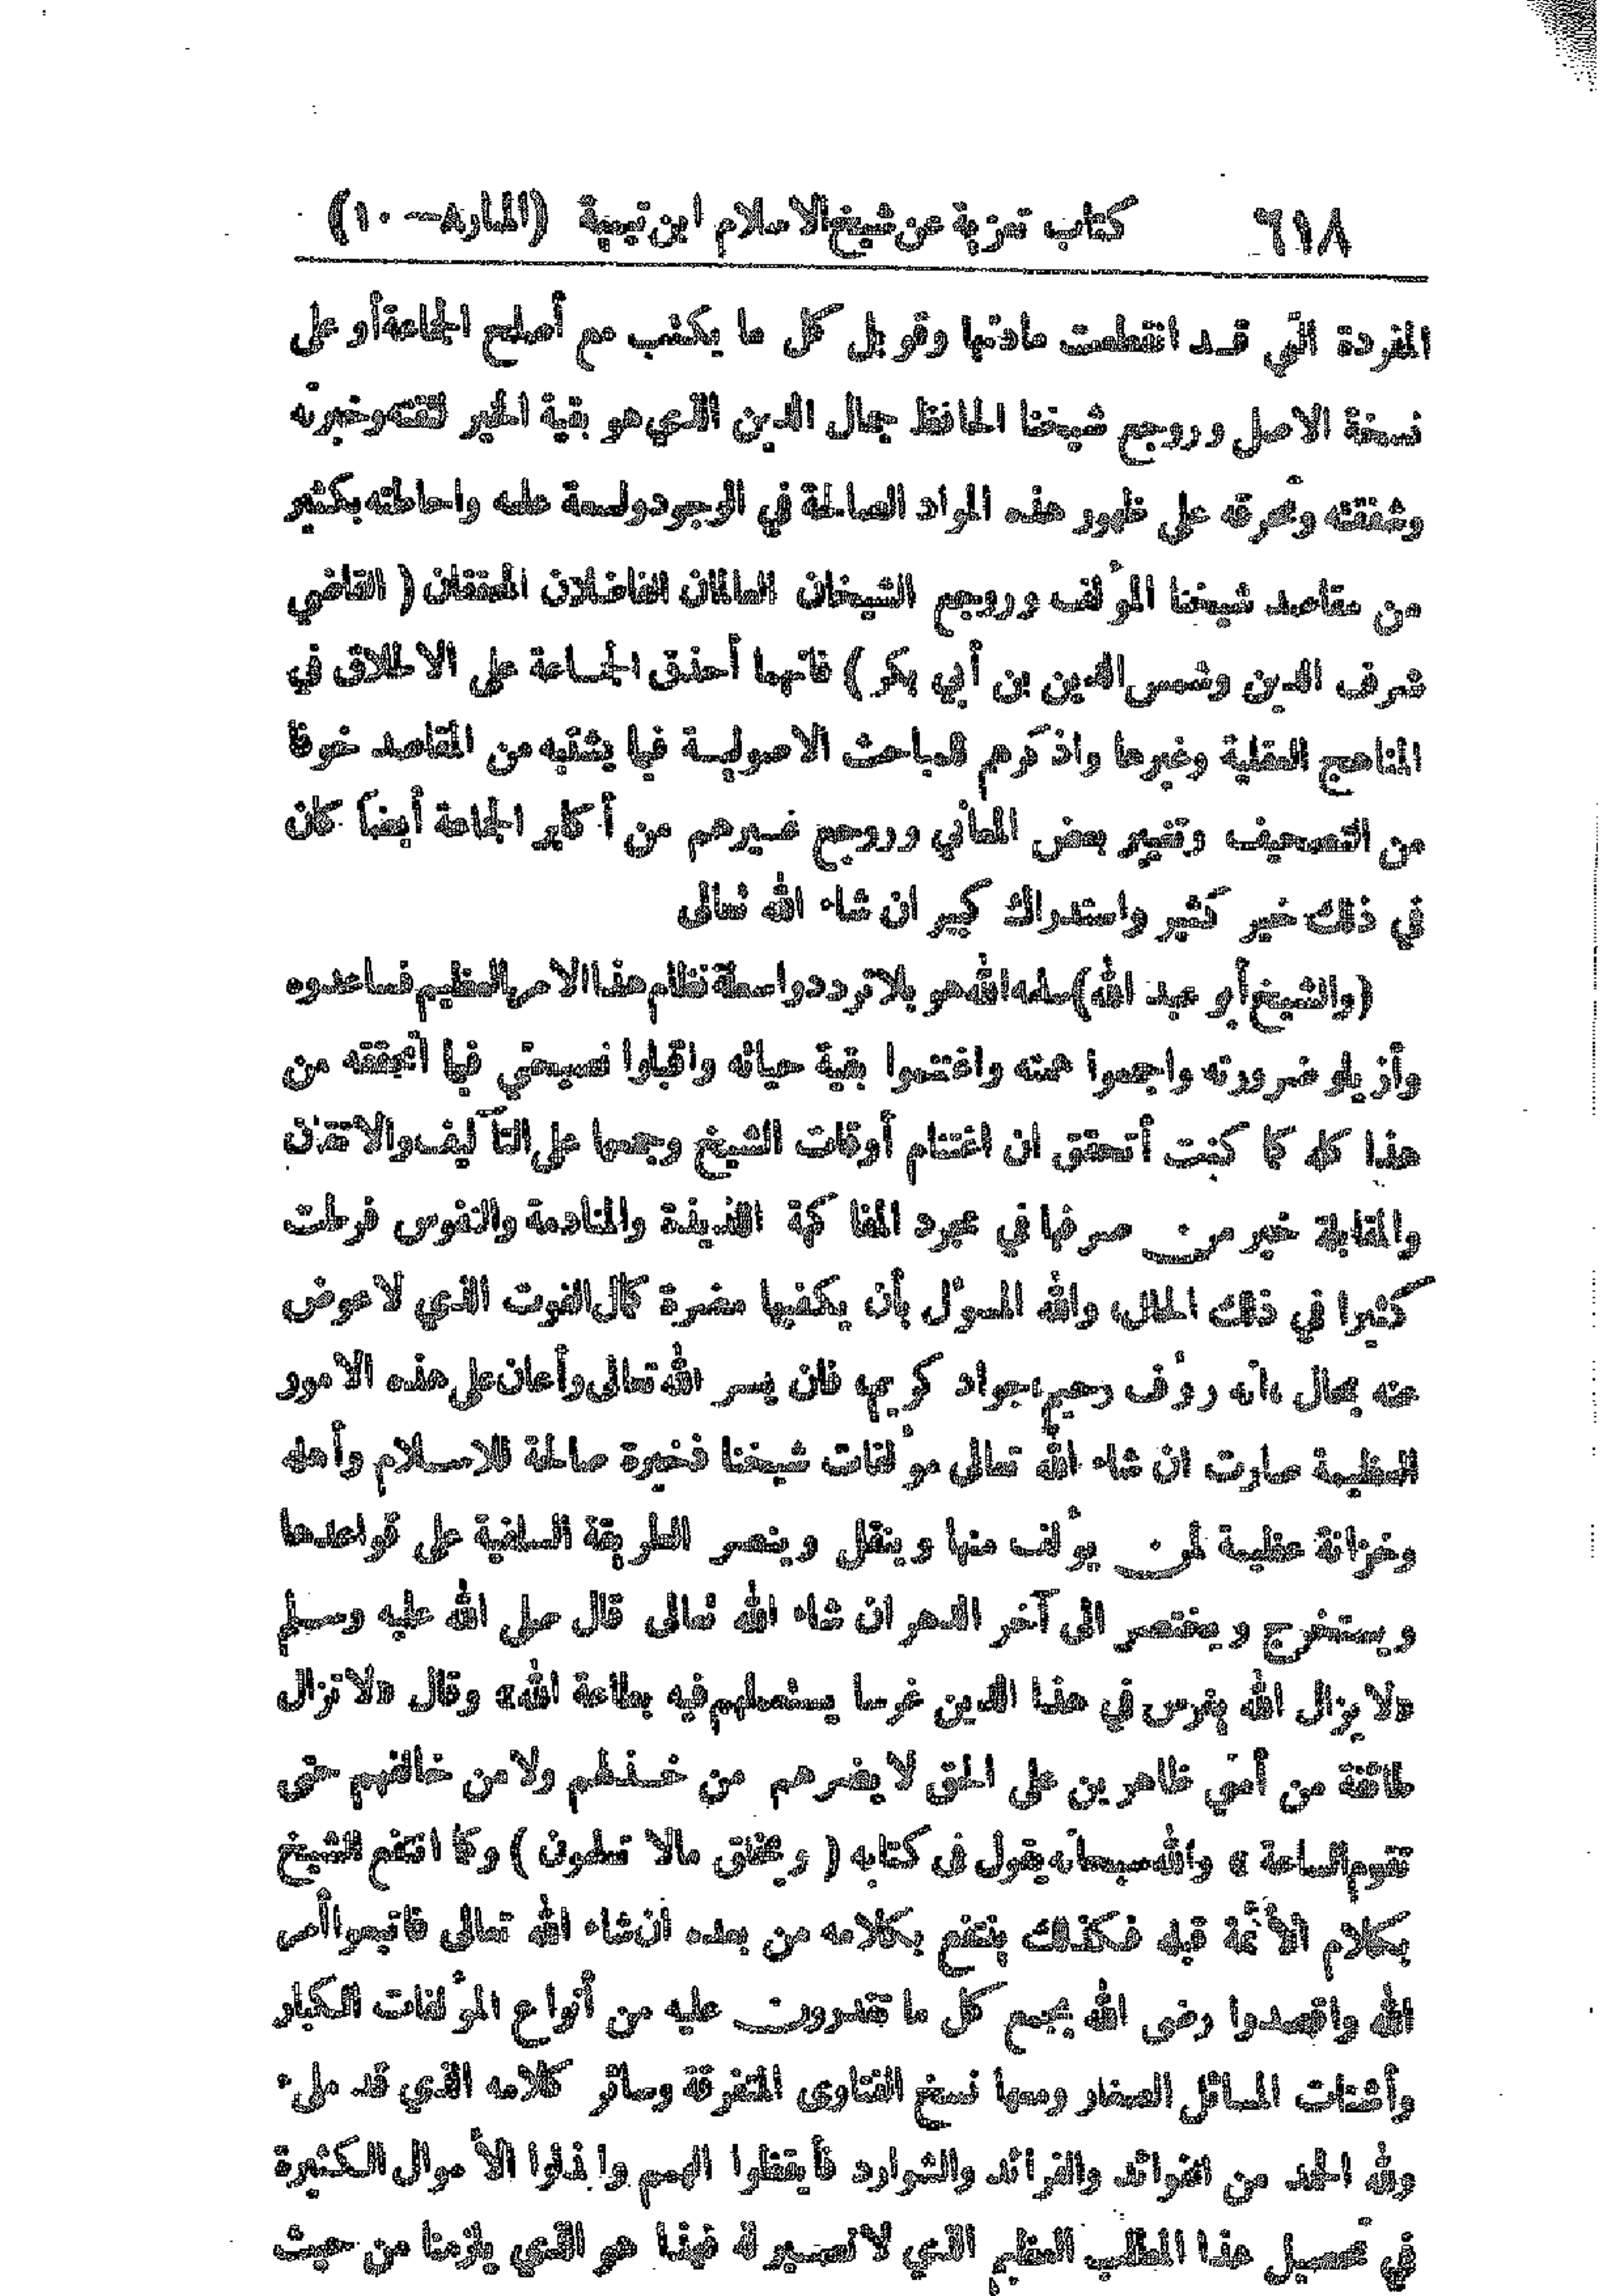 ٦١٨ كتاب تعزية عن شيخ الاسلام ابن تيمية (المنار٨—١٠)
المفردة التي قد انقطعت مادتها وقوبل كل ما يكتب مع أصلح الجماعة أو على
نسخة الاصل وروجع شيخنا الحافظ جمال الدين الذي هو بقية الخير لثقته وخبرته
وشفقته وتحرقه على ظهور هذه المواد الصالحة في الوجود ولسعة علمه واحاطته بكثير
من مقاصد شيخنا المؤلف وروجع الشيخان العالمان الفاضلان المحققان (القاضي
شرف الدين وشمس الدين بن أبي بكر) فانهما أحذق الجماعة على الاطلاق في
المناهج العقلية وغيرها واذكرهم للمباحث الاصولية فيما يشتبه من المقاصد خوفا
من التصحيف وتغيير بعض المعاني وروجع غيرهم من أكابر الجماعة أيضاً كان
في ذلك خير كثير واستدراك كبير ان شاء الله تعالى
(والشيخ أبو عبد الله) سلمه الله هو بلا تردد واسطة نظام هذا الامر العظيم فساعدوه
وأزيلو ضرورته واجمعوا همته واغتنموا بقية حياته واقبلوا نصيحتي فيما أتحققه من
هذا كله كما كنت أتحقق ان اغتنام أوقات الشيخ وجمعها على التآليف والاتقان
والمقابلة خير من صرفها في مجرد المفاكهة اللذيذة والمنادمة والنفوس فرطت
كثيرا في ذلك الحال، والله المسؤل بأن يكفيها مضرة كمال الفوت الذي لا عوض
عنه بحال، انه رؤف رحيم، جواد كريم، فان يسر الله تعالى وأعان على هذه الامور
العظيمة صارت ان شاء الله تعالى مؤلفات شيخنا ذخيرة صالحة للاسلام وأهله
وخزانة عظيمة لمن يؤلف منها وينقل وينصر الطريقة السلفية على قواعدها
ويستخرج ويختصر الى آخر الدهر ان شاء الله تعالى قال صلى الله عليه وسلم
«لا يزال الله يغرس في هذا الدين غرسا يستعملهم فيه بطاعة الله» وقال «لا تزال
طائفة من أمتي ظاهرين على الحق لا يضرهم من خذلهم ولا من خالفهم حتى
تقوم الساعة» والله سبحانه يقول في كتابه (ويخلق مالا تعلمون) وكما انتفع الشيخ
بكلام الأئمة قبله فكذلك ينتفع بكلامه من بعده ان شاء الله تعالى فاتبعوا أمر
الله واقصدوا رضى الله بجمع كل ما تقدرون عليه من أنواع المؤلفات الكبار
وأشتات المسائل الصغار ومعها نسخ الفتاوى المتفرقة وسائر كلامه الذي قد ملئ
ولله الحمد من الفوائد والفرائد والشوارد فأيقظوا الهمم وابذلوا الأموال الكثيرة
في تحصيل هذا المطلب العظيم الذي لا نظير له فهذا هو الذي يلزمنا من حيث